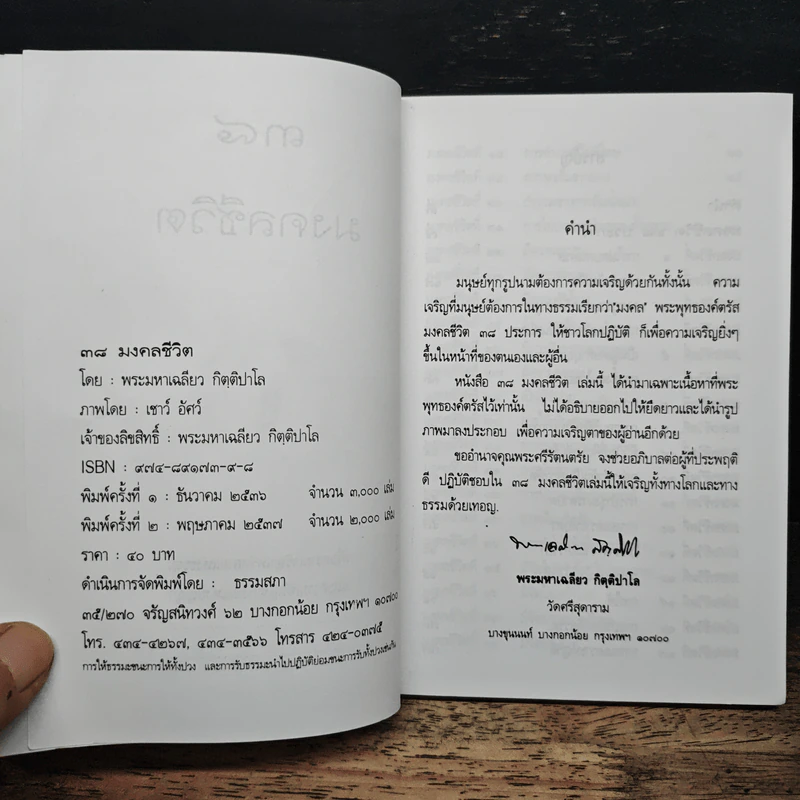 ๓๘ มงคลชีวิต
โดย : พระมหาเฉลียว กิตฺติปาโล
ภาพโดย : เชาว์ อัศว์
เจ้าของลิขสิทธิ์ : พระมหาเฉลียว กิตฺติปาโล
ISBN : ๙๗๔-๘๙๑๗๓-๙-๘
พิมพ์ครั้งที่ ๑ : ธันวาคม ๒๕๓๖ จำนวน ๓,๐๐๐ เล่ม
พิมพ์ครั้งที่ ๒ : พฤษภาคม ๒๕๓๗ จำนวน ๒,๐๐๐ เล่ม
ราคา : ๔๐ บาท
ดำเนินการจัดพิมพ์โดย : ธรรมสภา
๓๕/๒๗๐ จรัญสนิทวงศ์ ๖๒ บางกอกน้อย กรุงเทพฯ ๑๐๗๐๐
โทร. ๔๓๔-๔๒๖๗, ๔๓๔-๓๕๖๖ โทรสาร ๔๒๔-๐๓๗๕
การให้ธรรมะชนะการให้ทั้งปวง และการรับธรรมะนำไปปฏิบัติย่อมชนะการรับทั้งปวงเช่นกัน
คำนำ
มนุษย์ทุกรูปนามต้องการความเจริญด้วยกันทั้งนั้น ความ
เจริญที่มนุษย์ต้องการในทางธรรมเรียกว่า"มงคล" พระพุทธองค์ตรัส
มงคลชีวิต ๓๘ ประการ ให้ชาวโลกปฏิบัติ ก็เพื่อความเจริญยิ่งๆ
ขึ้นในหน้าที่ของตนเองและผู้อื่น
หนังสือ ๓๘ มงคลชีวิต เล่มนี้ ได้นำมาเฉพาะเนื้อหาที่พระ
พุทธองค์ตรัสไว้เท่านั้น ไม่ได้อธิบายออกไปให้ยืดยาวและได้นำรูป
ภาพมาลงประกอบ เพื่อความเจริญตาของผู้อ่านอีกด้วย
ขออำนาจคุณพระศรีรัตนตรัย จงช่วยอภิบาลต่อผู้ที่ประพฤติ
ดี ปฏิบัติชอบใน ๓๘ มงคลชีวิตเล่มนี้ให้เจริญทั้งทางโลกและทาง
ธรรมด้วยเทอญ.
พระมหาเฉลียว กิตฺติปาโล
วัดศรีสุดาราม
บางขุนนนท์ บางกอกน้อย กรุงเทพฯ ๑๐๗๐๐